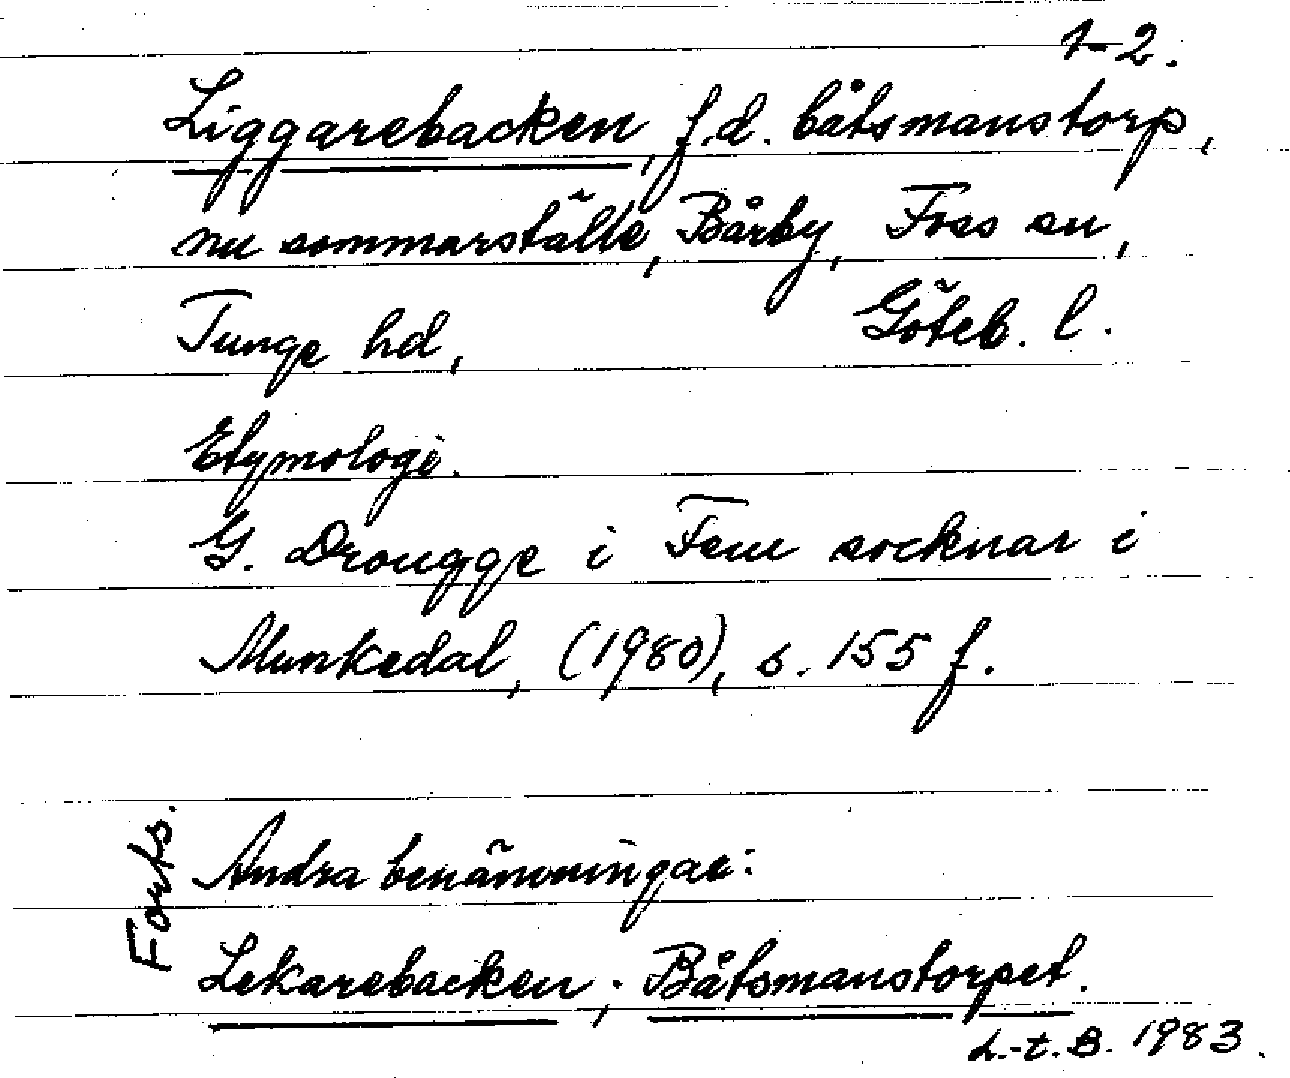 1-2.
Liggarebacken, f.d. båtsmanstorp,
nu sommarställe, Bärby, Foss sn,
Tunge hd, Göteb. l.
Etymologi.
G. Drougge i Fem socknar i
Munkedal, (1980), s. 155 f.
Forts.
Andra benämningar:
Lekarebacken; Båtsmanstorpet.
L.-t. B. 1983.